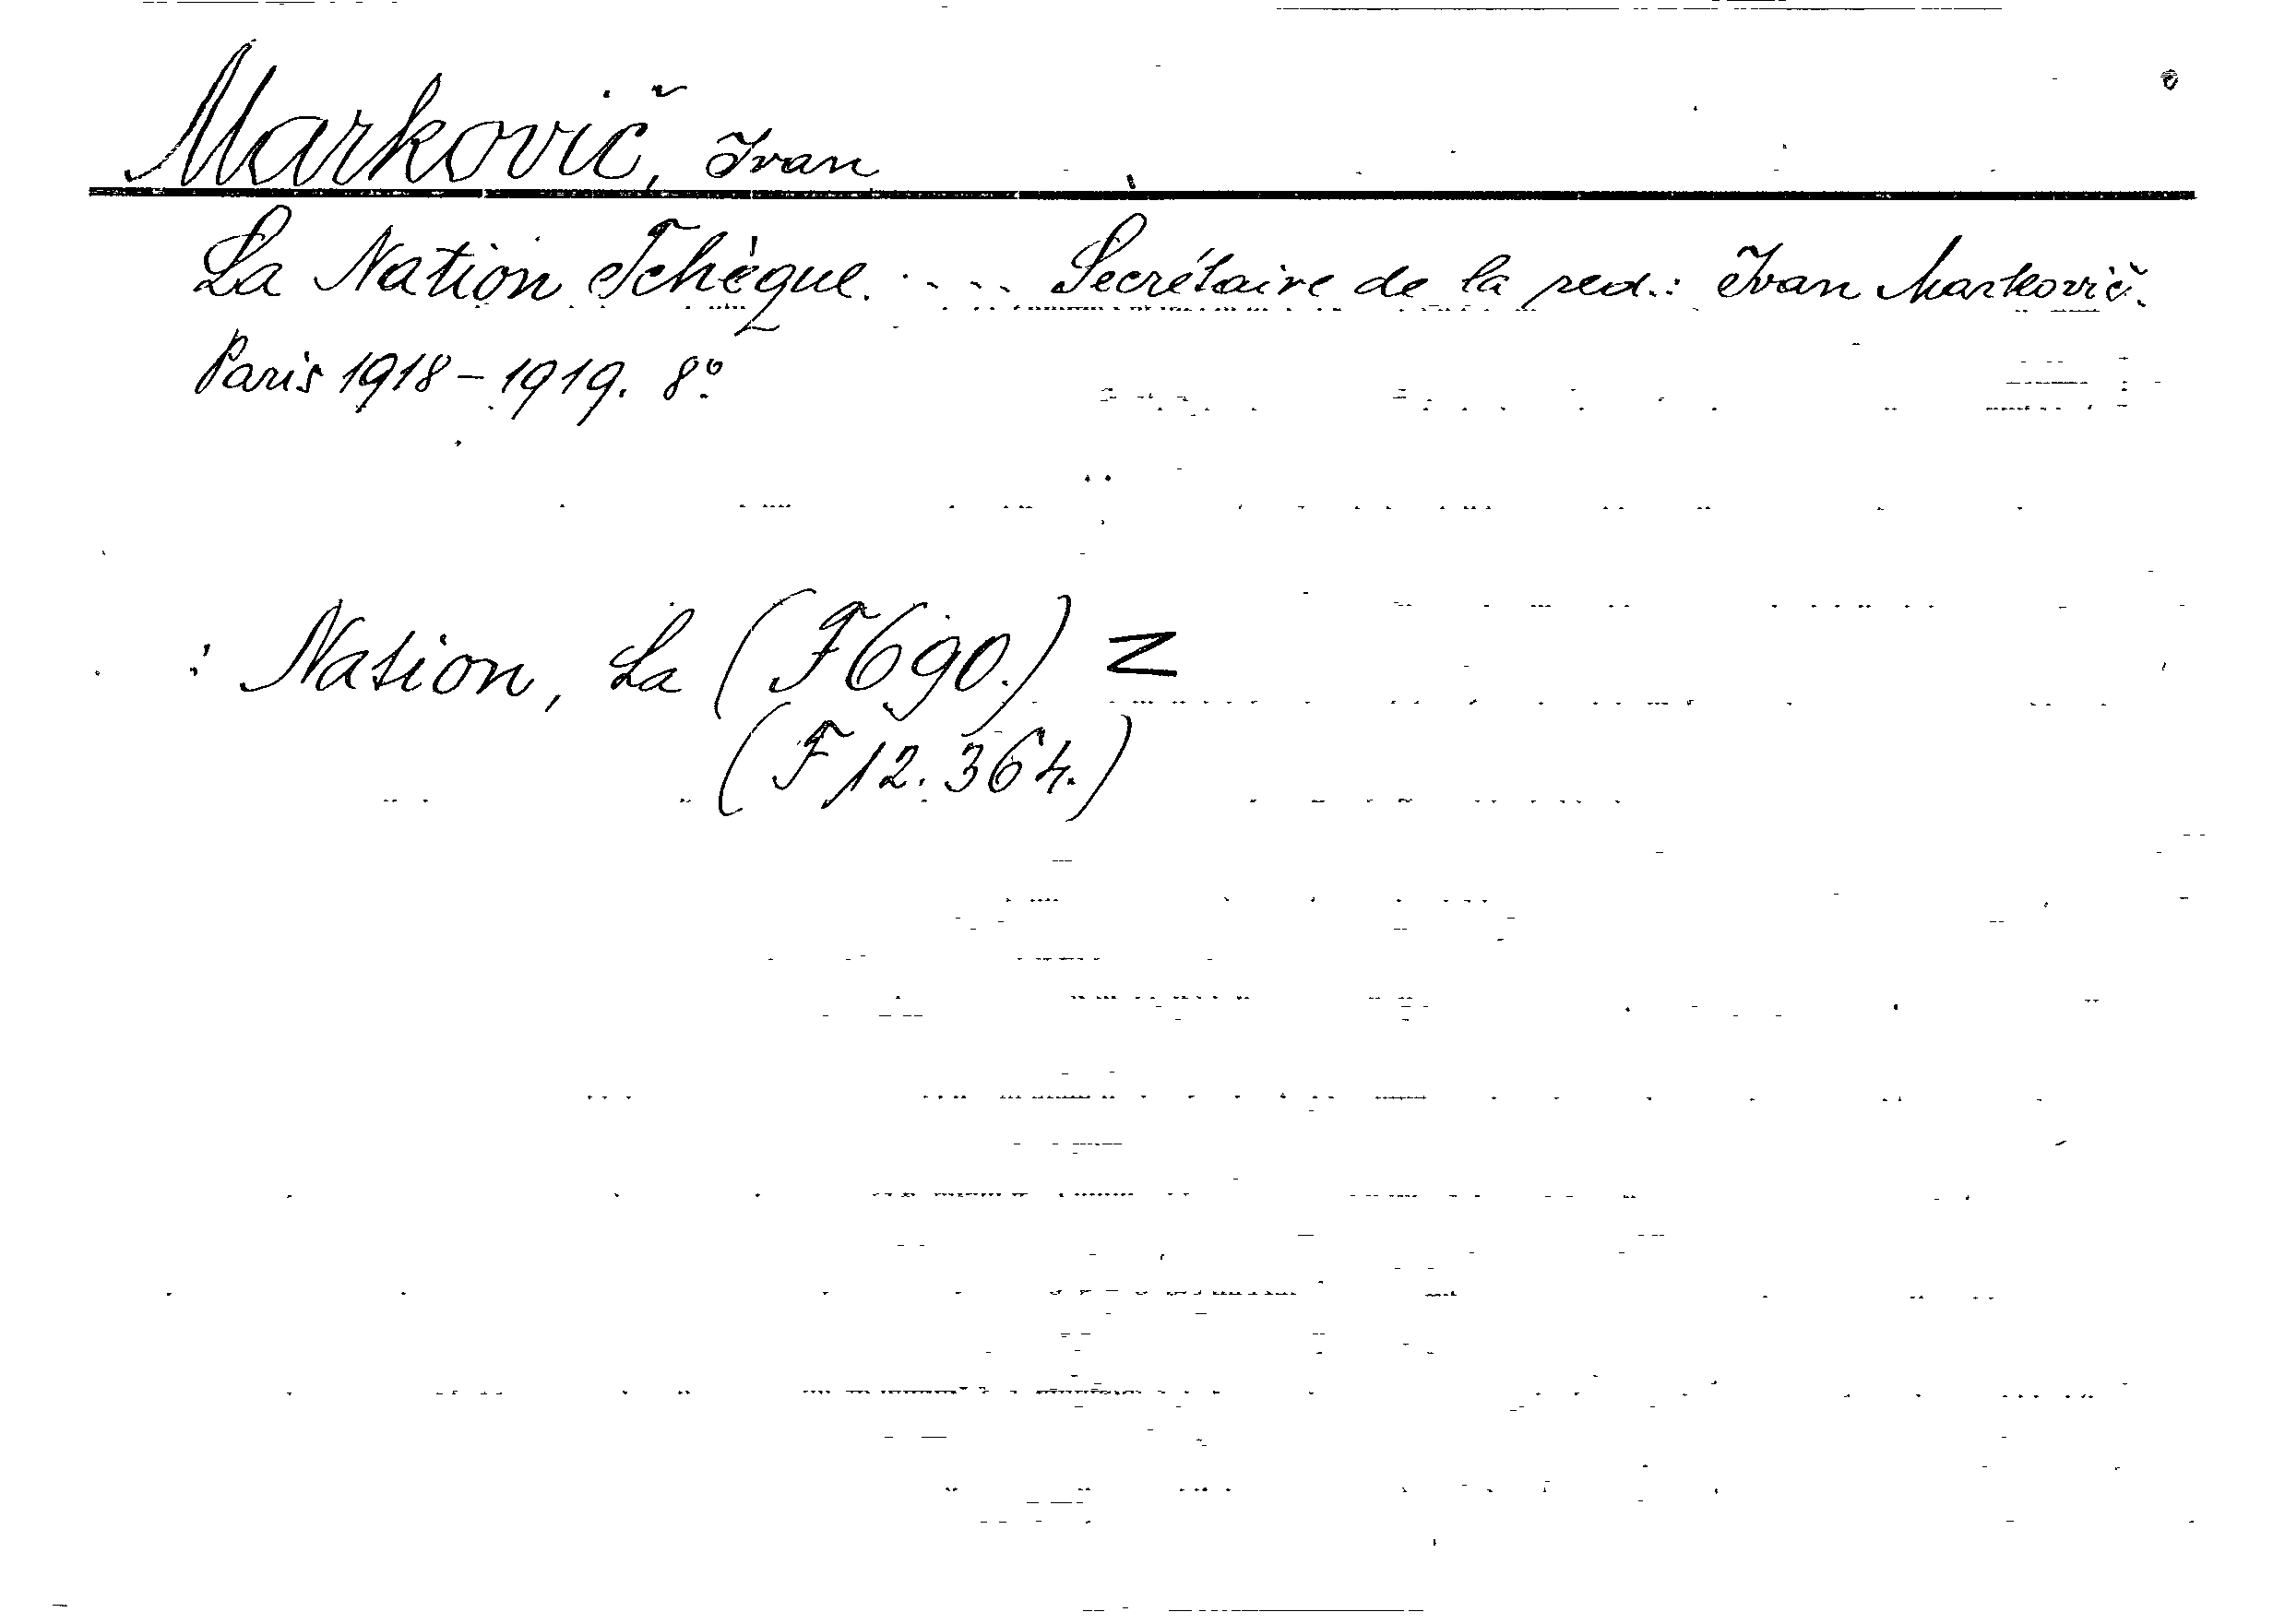 Markovič, Ivan
La Nation Tchèque. . . . Secrétaire de la red.: Ivan Markovič.
Paris 1918-1919. 8º.
: Nation, La (F 690.) Z
(F 12.364.)